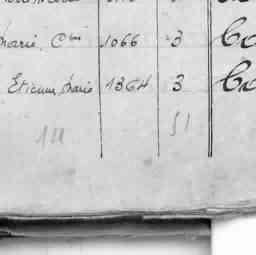 Marie, Cne 1066 3 Co
Etienne, Marie 1864 3 Co
111 51